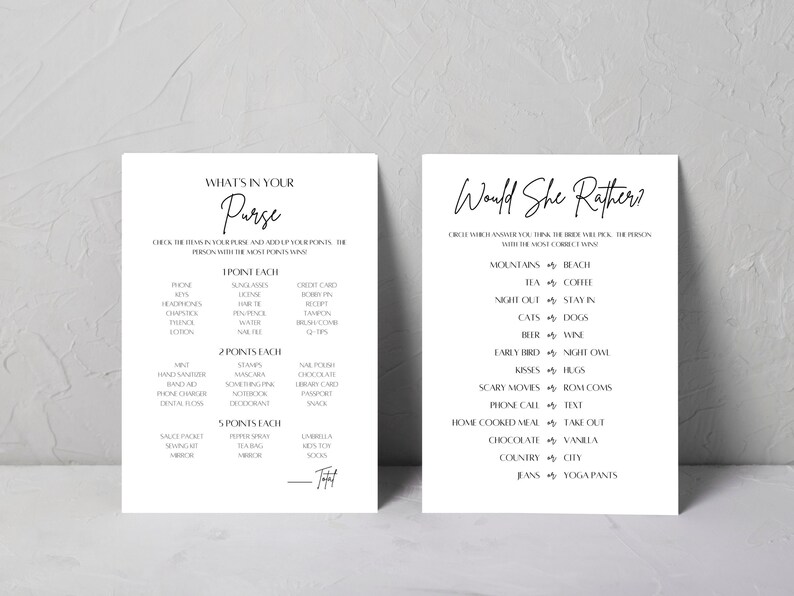 WHAT'S IN YOUR
Purse
CHECK THE ITEMS IN YOUR PURSE AND ADD UP YOUR POINTS. THE
PERSON WITH THE MOST POINTS WINS!
1 POINT EACH
PHONE SUNGLASSES CREDIT CARD
KEYS LICENSE BOBBY PIN
HEADPHONES HAIR TIE RECEIPT
CHAPSTICK PEN/PENCIL TAMPON
TYLENOL WATER BRUSH/COMB
LOTION NAIL FILE Q-TIPS
2 POINTS EACH
MINT STAMPS NAIL POLISH
HAND SANITIZER MASCARA CHOCOLATE
BAND AID SOMETHING PINK LIBRARY CARD
PHONE CHARGER NOTEBOOK PASSPORT
DENTAL FLOSS DEODORANT SNACK
5 POINTS EACH
SAUCE PACKET PEPPER SPRAY UMBRELLA
SEWING KIT TEA BAG KID'S TOY
MIRROR MIRROR SOCKS
Total
Would She Rather?
CIRCLE WHICH ANSWER YOU THINK THE BRIDE WILL PICK. THE PERSON
WITH THE MOST CORRECT WINS!
MOUNTAINS or BEACH
TEA or COFFEE
NIGHT OUT or STAY IN
CATS or DOGS
BEER or WINE
EARLY BIRD or NIGHT OWL
KISSES or HUGS
SCARY MOVIES or ROM COMS
PHONE CALL or TEXT
HOME COOKED MEAL or TAKE OUT
CHOCOLATE or VANILLA
COUNTRY or CITY
JEANS or YOGA PANTS